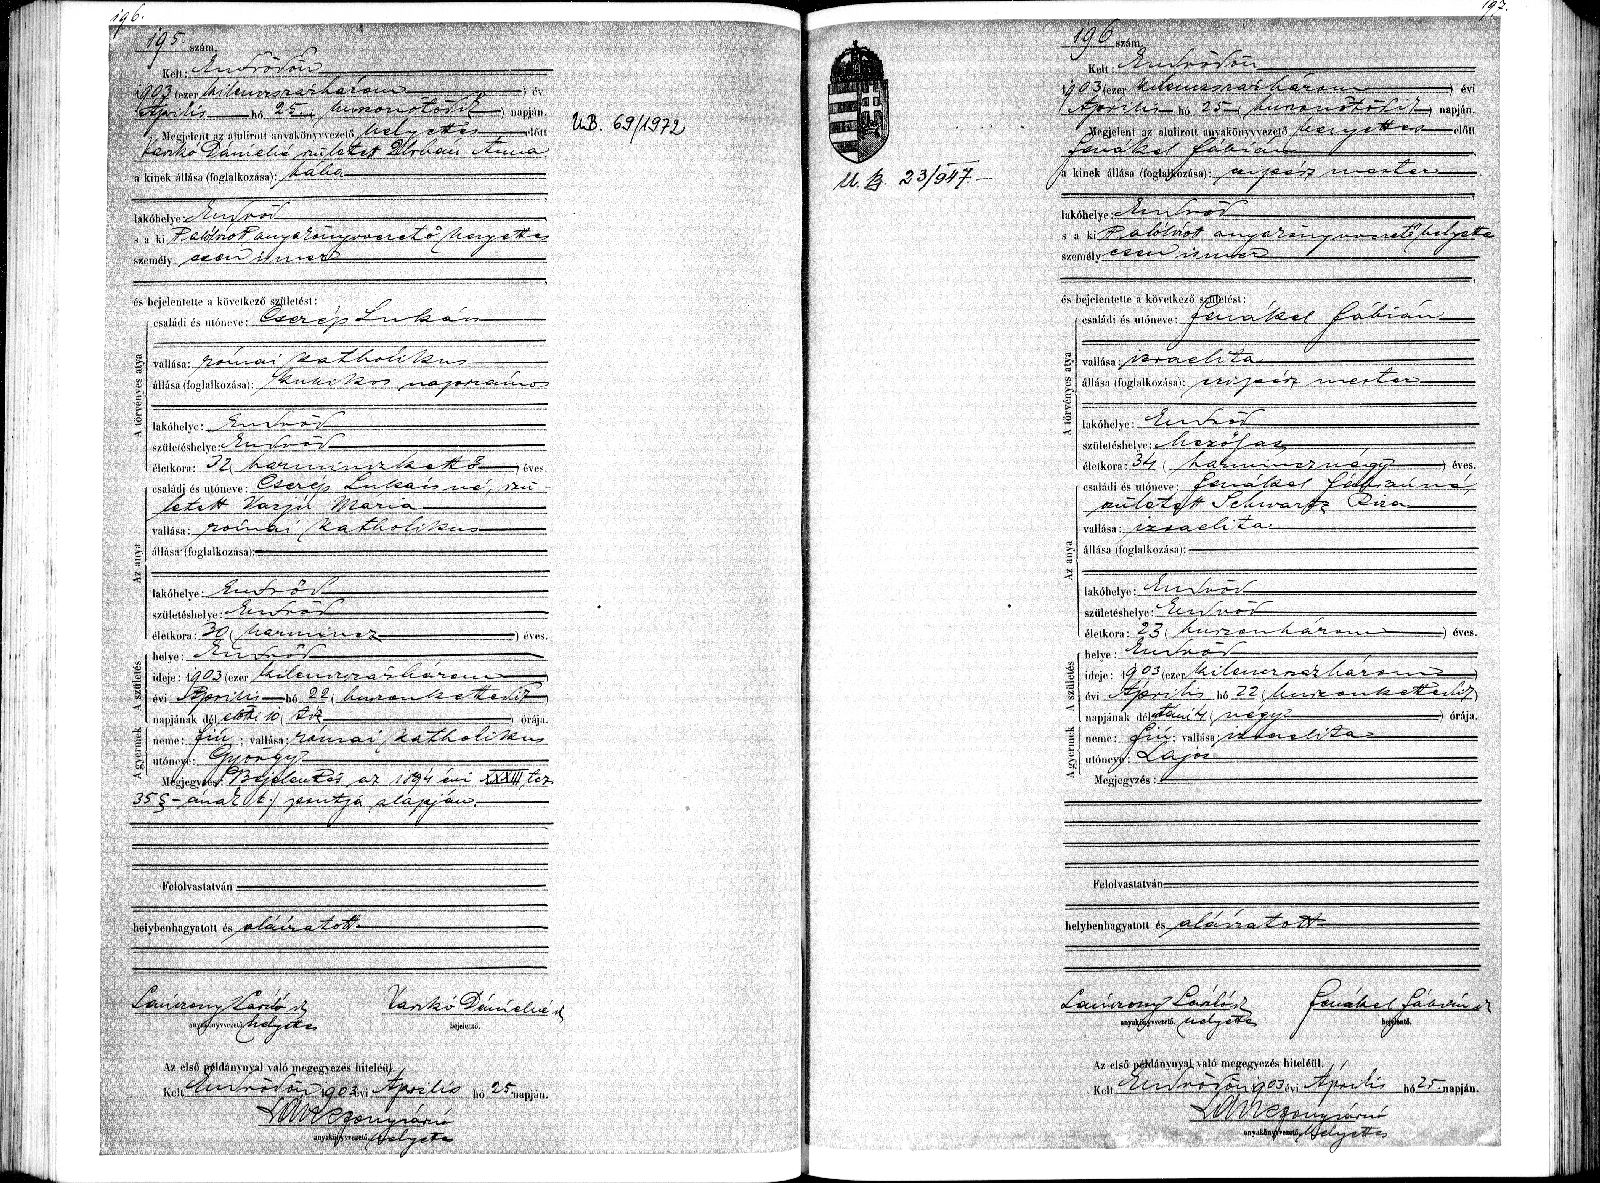 196.
195 szám.
Kelt: Endrődön
1903 (ezer kilenczszázhárom) évi
Április hó 25 (huszonötödik) napján.
Megjelent az alulirott anyakönyvvezető helyettes előtt
Varikó Dánielné született Urban Anna
a kinek állása (foglalkozása): bába
lakóhelye: Endrőd
s a ki alólirot anyakönyvvezető helyettes
személy esen ismer
és bejelentette a következő születést:
A törvényes atya
családi és utóneve: Cserép Lukács
vallása: római katholikus
állása (foglalkozása): kubikos napszámos
lakóhelye: Endrőd
születéshelye: Endrőd
életkora: 32 (harminczkettő) éves.
Az anya
családi és utóneve: Cserép Lukácsné, szü-
letett Varjú Mária
vallása: római katholikus
állása (foglalkozása):
lakóhelye: Endrőd
születéshelye: Endrőd
életkora: 30 (harmincz) éves.
A születés
helye: Endrőd
ideje: 1903 (ezer kilenczszázhárom)
évi Április hó 22 (huszonkettedik)
napjának dél előtti 10 (tiz) órája.
A gyermek
neme: fiú; vallása: római katholikus
utóneve: György
Megjegyzés: Bejelentés az 1894 évi XXXIII tcz
35 §-ának t.) pontja alapján.
Felolvastatván
helybenhagyatott és aláiratott
Varikó Dánielné
anyakönyvvezető. helyettes bejelentő.
Az első példánynyal való megegyezés hiteléül.
Kelt Endrődön 1903 évi Április hó 25 napján.
anyakönyvvezető. helyettes
U.B. 69/1972
197.
196 szám.
Kelt: Endrődön
1903 (ezer kilenczszázhárom) évi
Április hó 25 (huszonötödik) napján.
Megjelent az alulirott anyakönyvvezető helyettes előtt
Fenákel Fábián
a kinek állása (foglalkozása): szijjász mester
lakóhelye: Endrőd
s a ki alólirot anyakönyvvezető helyettes
személy esen ismer
és bejelentette a következő születést:
A törvényes atya
családi és utóneve: Fenákel Fábián
vallása: izraelita
állása (foglalkozása): mester
lakóhelye: Endrőd
születéshelye:
életkora: 34 (harmincznégy) éves.
Az anya
családi és utóneve: Fenákel Fábiánné,
született Schwarcz Róza
vallása: izraelita
állása (foglalkozása):
lakóhelye: Endrőd
születéshelye: Endrőd
életkora: 23 (huszonhárom) éves.
A születés
helye: Endrőd
ideje: 1903 (ezer kilenczszázhárom)
évi Április hó 22 (huszonkettedik)
napjának dél utáni 4 (négy) órája.
A gyermek
neme: fiú; vallása: izraelita
utóneve: Lajos
Megjegyzés:
Felolvastatván
helybenhagyatott és aláiratott
Fenákel Fábián
anyakönyvvezető. helyettes bejelentő.
Az első példánynyal való megegyezés hiteléül.
Kelt Endrődön 1903 évi Április hó 25 napján.
anyakönyvvezető. helyettes
U.B. 23/947